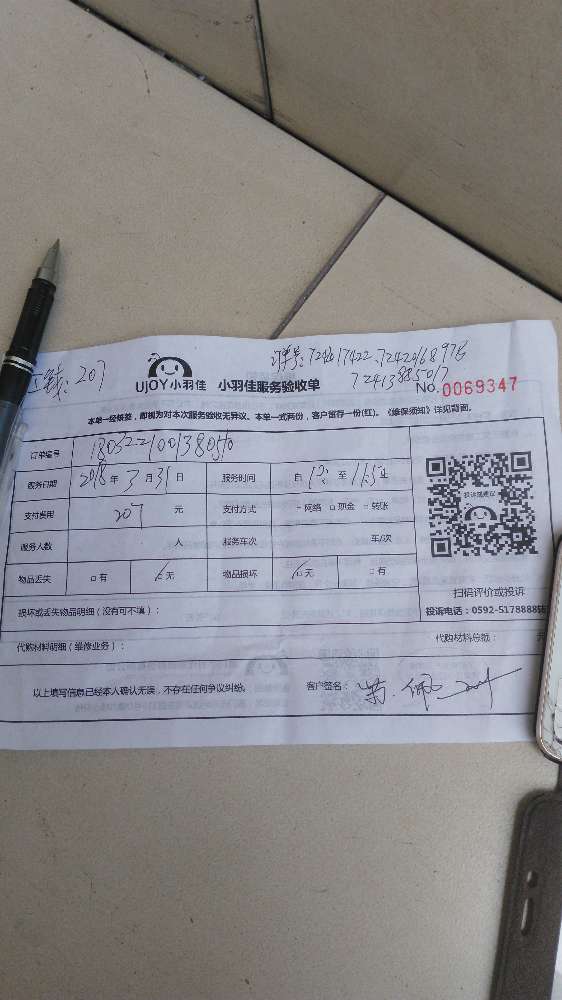 订单号:724617422、7242068976
工钱:207
724138850/7
UJOY小羽佳 小羽佳服务验收单
No.0069347
本单一经领签,即视为对本次服务验收无异议。本单一式两份,客户留存一份(红)。《维保须知》详见背面。
订单编号 180322100138050
服务日期 2018年3月31日 服务时间 自 至 止
支付费用 207 元 支付方式 网络 现金 转账
服务人数 人 服务车次 车/次
物品丢失 有 无 物品损坏 无 有
投诉或建议
扫码评价或投诉
损坏或丢失物品明细(没有可不填):
投诉电话:0592-5178888
代购材料明细(维修业务): 代购材料总额: 元
以上填写信息已经本人确认无误,不存在任何争议纠纷。 客户签名: